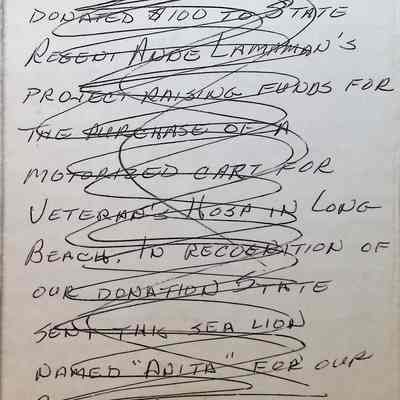 DONATED $100 TO STATE
REGENT ANDE LAMAMAN'S
PROJECT RAISING FUNDS FOR
THE PURCHASE OF A
MOTORIZED CART FOR
VETERAN'S HOSP IN LONG
BEACH. IN RECOGNITION OF
OUR DONATION STATE
SENT THIS SEA LION
NAMED "ANITA" FOR OUR